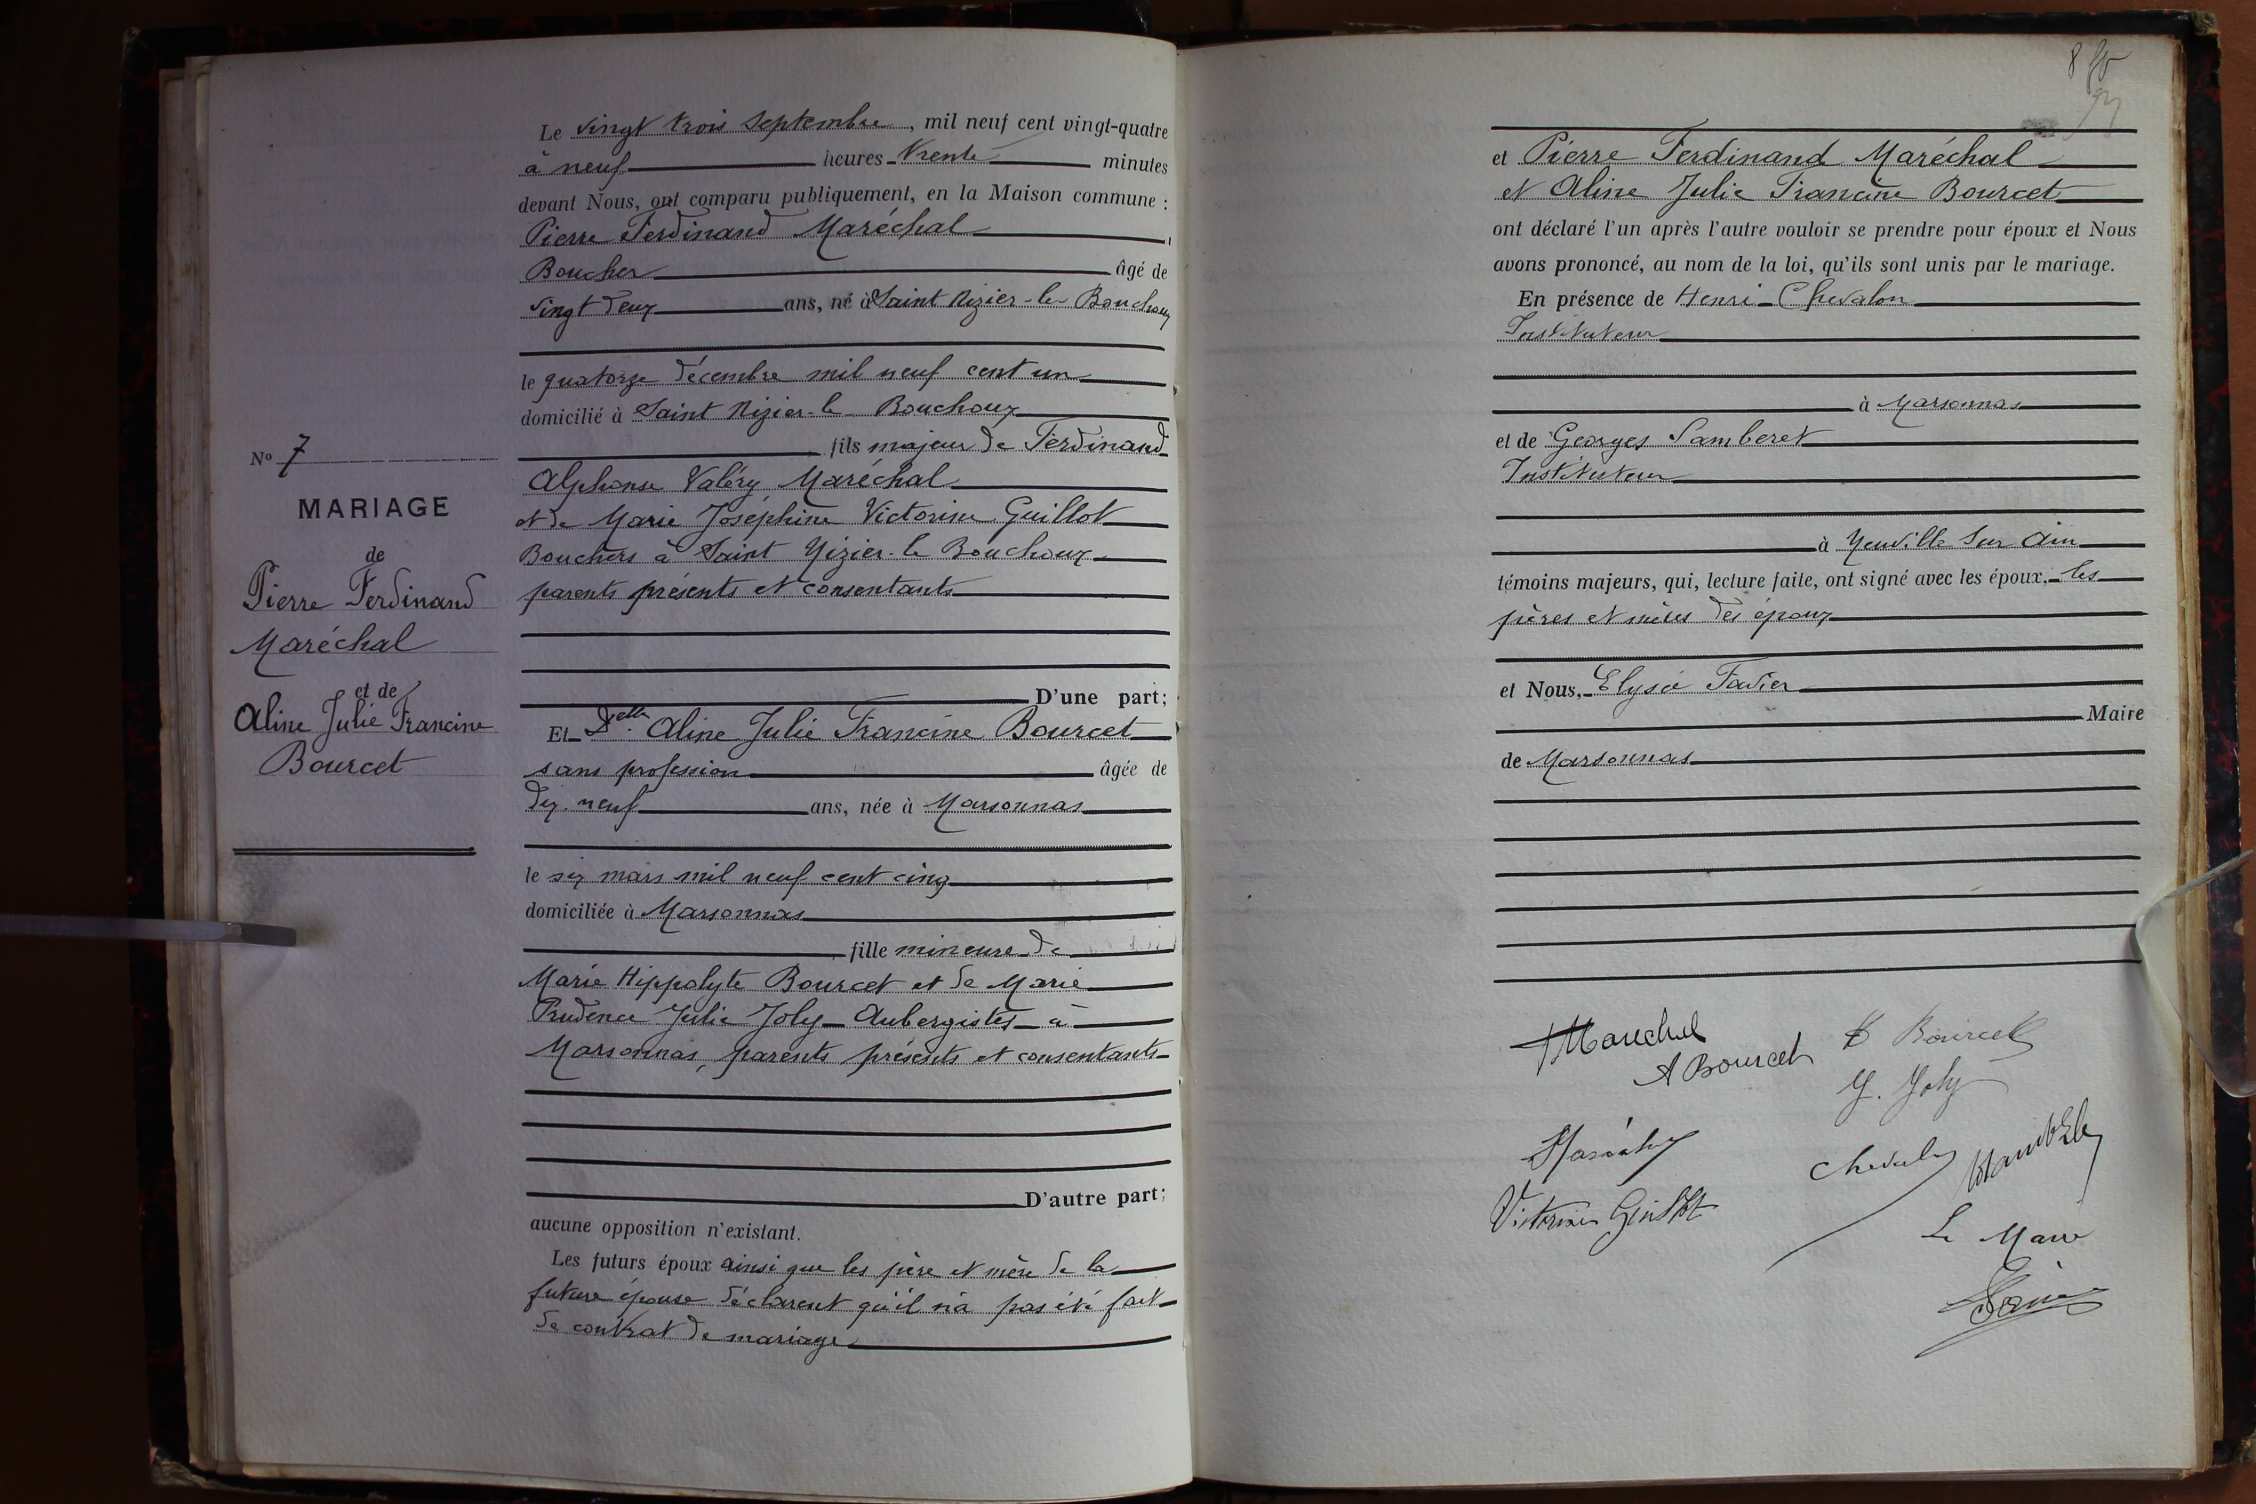 Le vingt trois Septembre, mil neuf cent vingt-quatre
à neuf heures trente minutes
devant Nous, ont comparu publiquement, en la Maison commune :
Pierre Ferdinand Maréchal,
Boucher âgé de
vingt deux ans, né à Saint Nizier-le-Bouchoux
le quatorze décembre mil neuf cent un
domicilié à Saint Nizier-le Bouchoux
fils majeur de Ferdinand
Alphonse Valéry Maréchal
et de Marie Joséphine Victorine Guillot
Bouchers à Saint Nizier-le Bouchoux
parents présents et consentants
D'une part;
Et Delle Aline Julie Francine Bourcet
sans profession âgée de
dix-neuf ans, née à Marsonnas
le six mars mil neuf cent cinq
domiciliée à Marsonnas
fille mineure de
Marie Hippolyte Bourcet et de Marie
Prudence Julie Joly Aubergistes à
Marsonnas, parents présents et consentants
D'autre part;
aucune opposition n'existant.
Les futurs époux ainsi que les père et mère de la
future épouse déclarent qu'il n'a pas été fait
de contrat de mariage
No 7
MARIAGE
de
Pierre Ferdinand
Maréchal
et de
Aline Julie Francine
Bourcet
8
et Pierre Ferdinand Maréchal
et Aline Julie Francine Bourcet
ont déclaré l'un après l'autre vouloir se prendre pour époux et Nous
avons prononcé, au nom de la loi, qu'ils sont unis par le mariage.
En présence de Henri Chevalon
Instituteur
à Marsonnas
et de Georges Samberet
Instituteur
à Neuville sur Ain
témoins majeurs, qui, lecture faite, ont signé avec les époux, les
pères et mères des époux
et Nous, Elysée Favier
Maire
de Marsonnas
Maréchal
A Bourcet
H Bourcet
J. Joly
Maréchal
Victorine Guillot
Le Maire